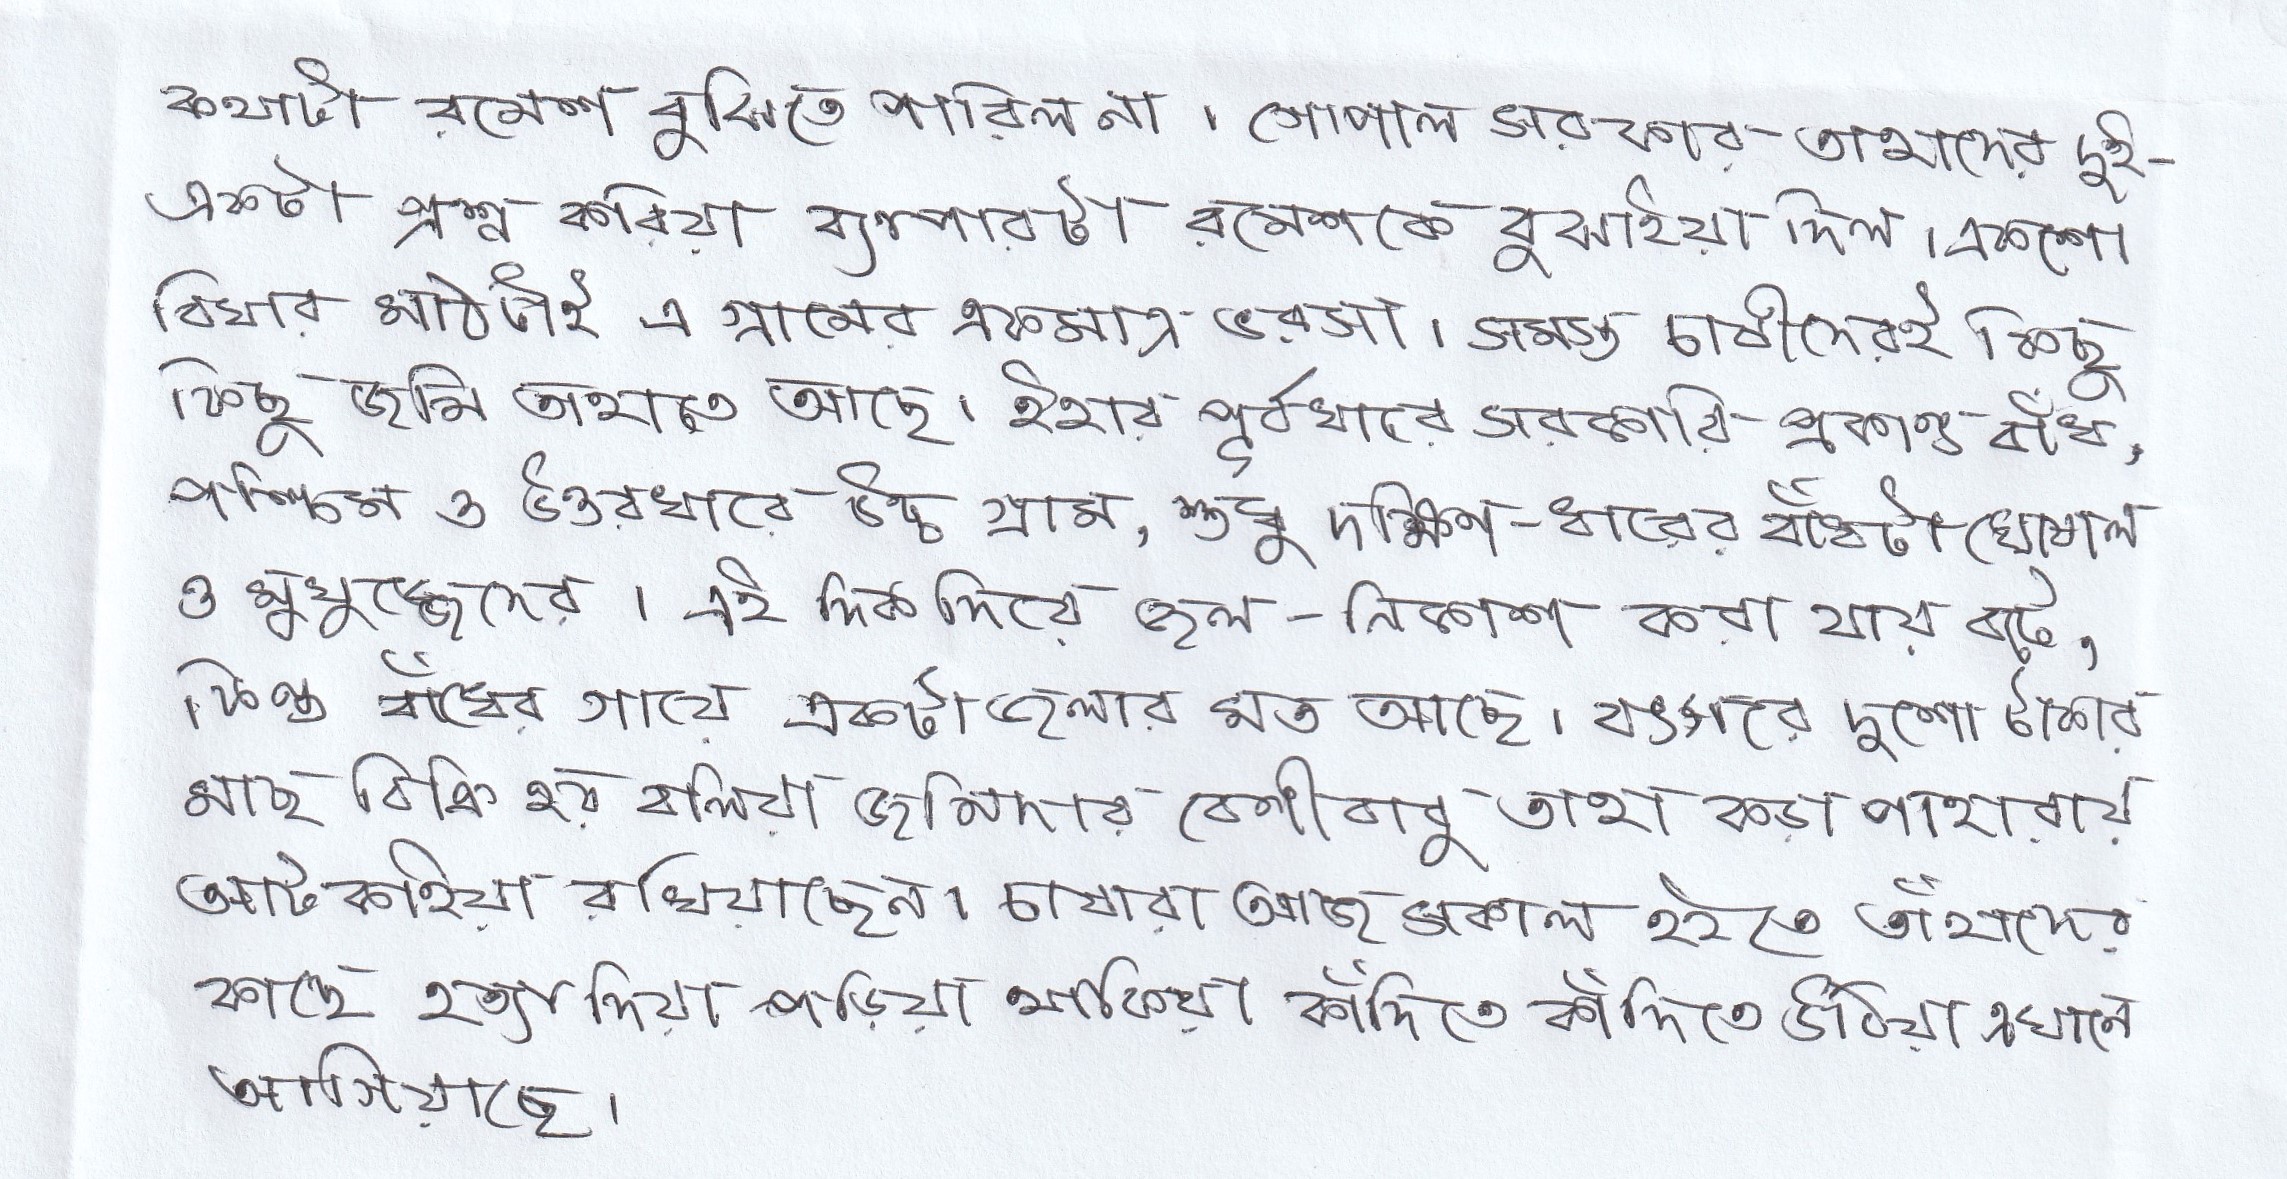 কথাটা রমেশ বুঝিতে পারিল না। গোপাল সরকার তাহাদের দুই-
একটা প্রশ্ন করিয়া ব্যাপারটা রমেশকে বুঝাইয়া দিল। একশো
বিঘার মাঠটাই এ গ্রামের একমাত্র ভরসা। সমস্ত চাষীদেরই কিছু
কিছু জমি তাহাতে আছে। ইহার পূর্বধারে সরকারি প্রকাণ্ড বাঁধ,
পশ্চিম ও উত্তরধারে উচ্চ গ্রাম, শুধু দক্ষিণ-ধারের বাঁধটা ঘোষাল
ও মুখুজ্জেদের। এই দিক দিয়ে জল-নিকাশ করা যায় বটে,
কিন্তু বাঁধের গায়ে একটা জলার মত আছে। বৎসরে দুশো টাকার
মাছ বিক্রি হয় বলিয়া জমিদার বেণীবাবু তাহা কড়া পাহারায়
আটকাইয়া রাখিয়াছেন। চাষারা আজ সকাল হইতে তাঁহাদের
কাছে হত্যা দিয়া পড়িয়া থাকিয়া কাঁদিতে কাঁদিতে উঠিয়া এখানে
আসিয়াছে।